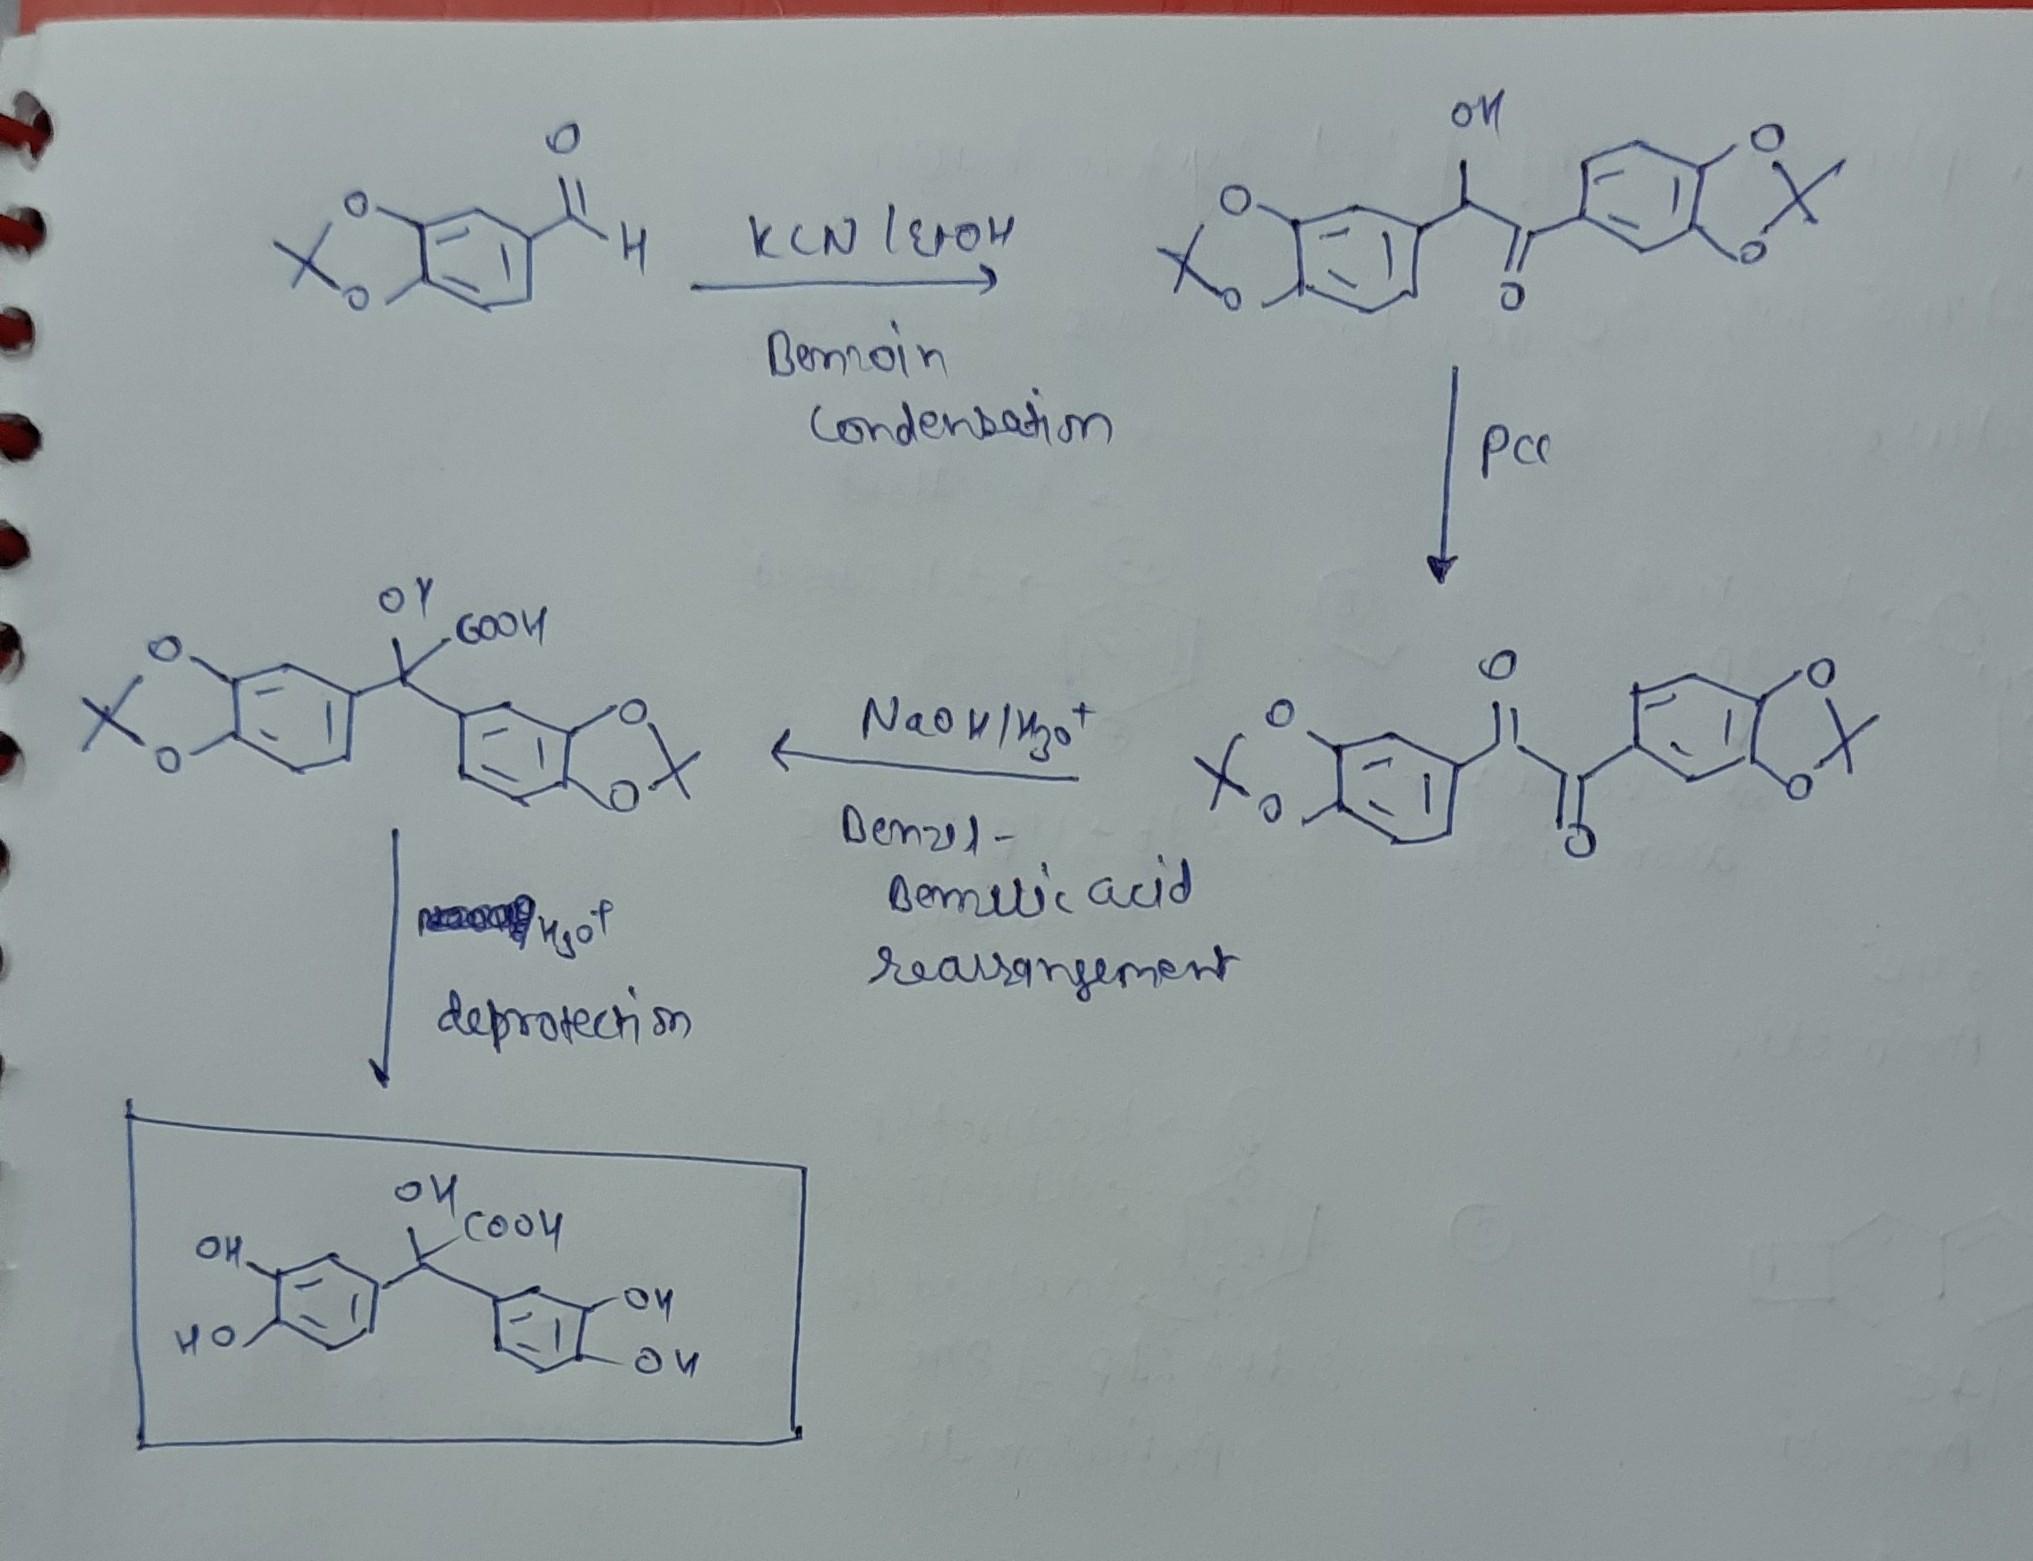 O
O
H
O
KCN/EtOH
Benzoin
Condensation
OH
O
O
O
O
O
PCC
O
O
O
O
O
O
NaOH/H3O+
Benzil-
Benzilic acid
rearrangement
OH
COOH
O
O
O
O
H3O+
deprotection
OH
COOH
OH
HO
OH
OH